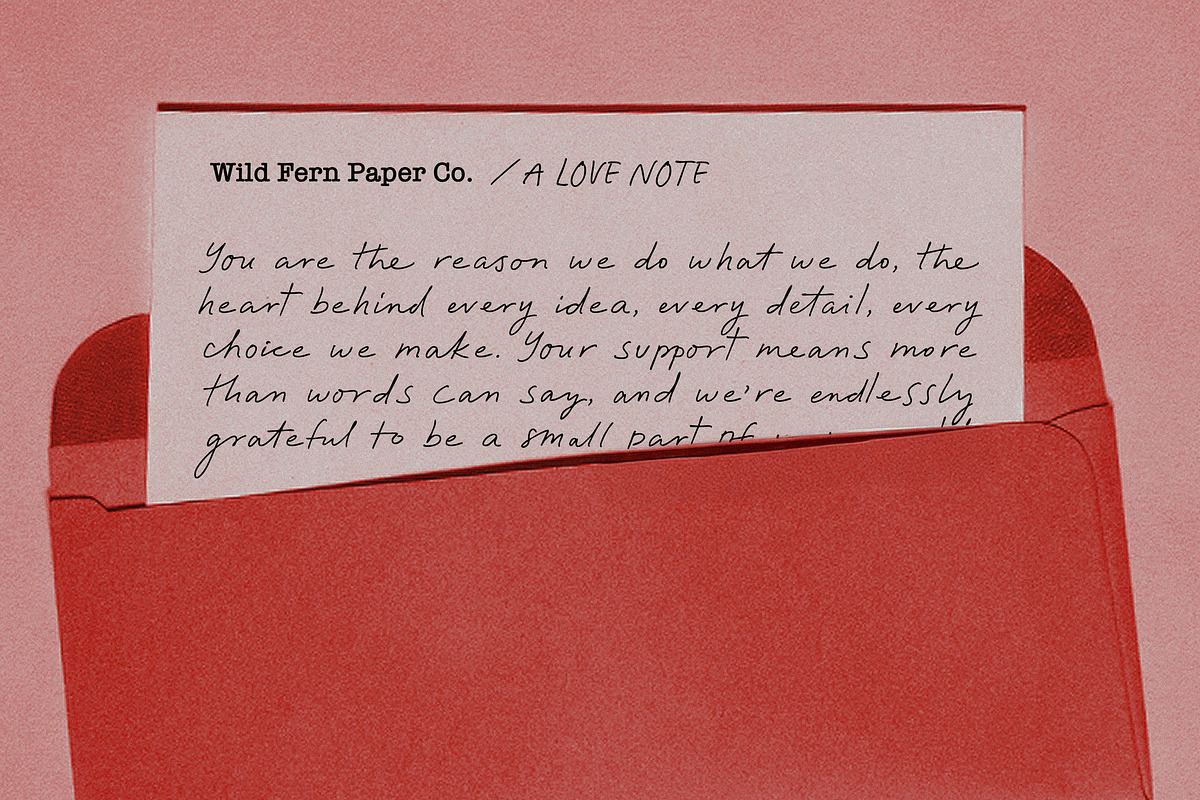 Wild Fern Paper Co. / A LOVE NOTE
You are the reason we do what we do, the
heart behind every idea, every detail, every
choice we make. Your support means more
than words can say, and we're endlessly
grateful to be a small part of